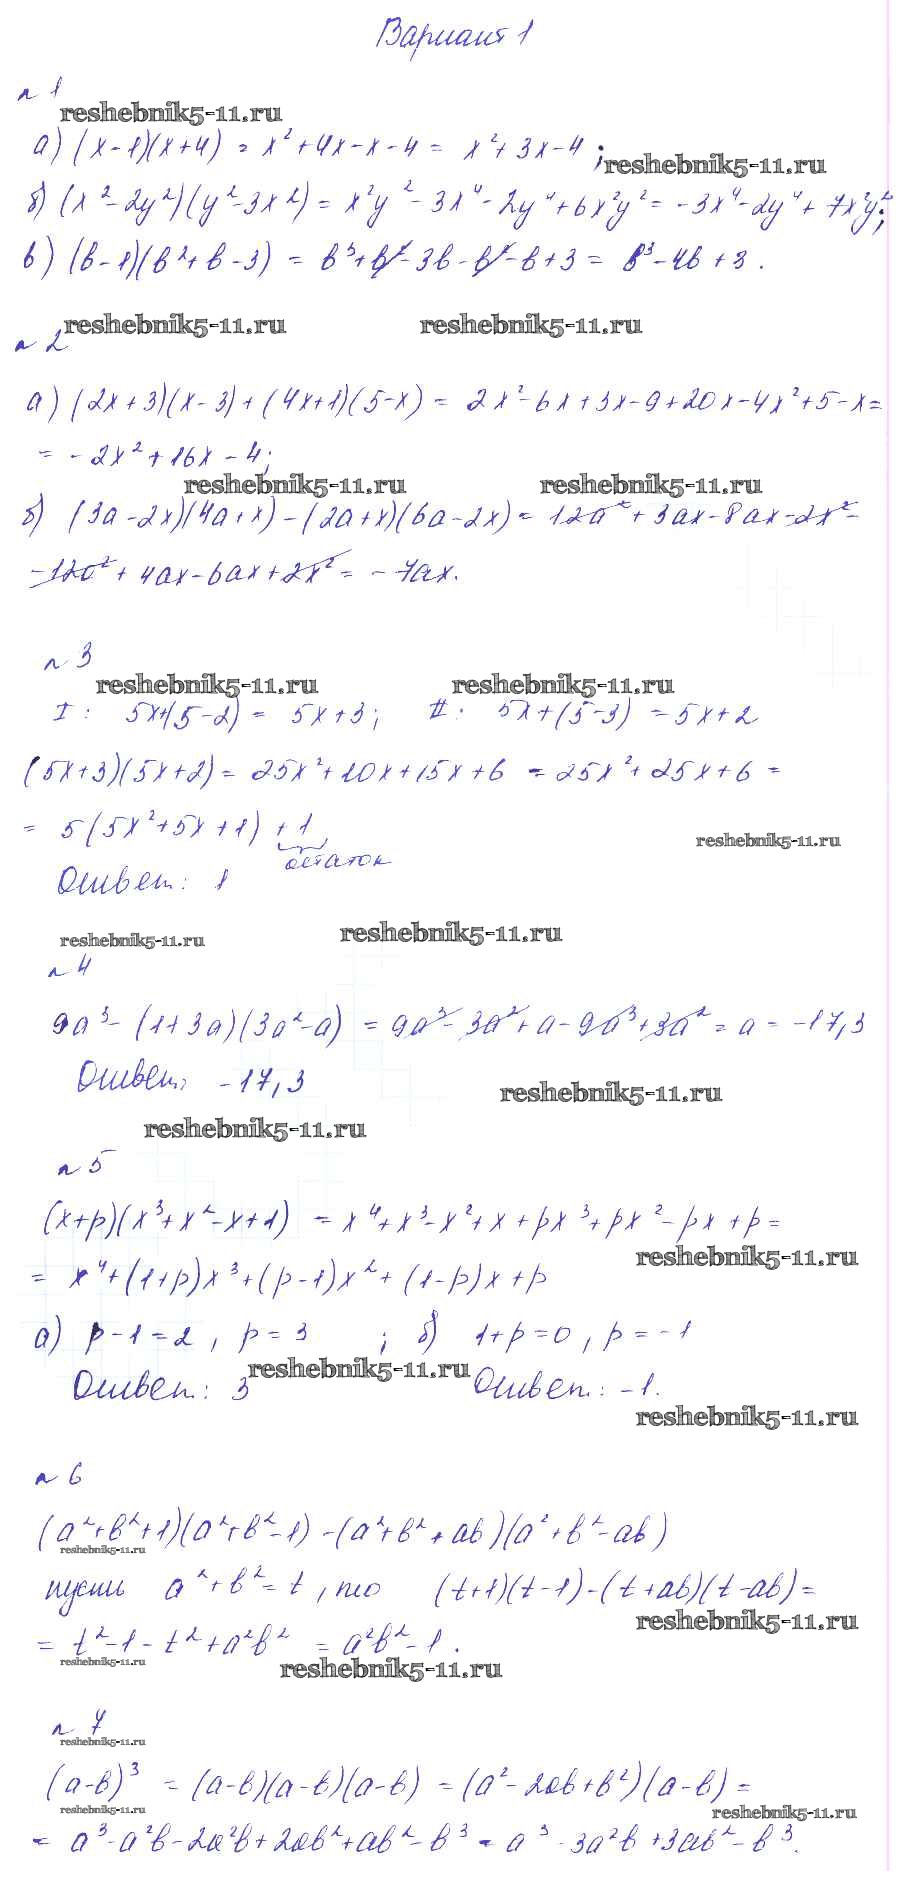 Вариант 1
n 1
reshebnik5-11.ru
а) (x-1)(x+4) = x²+4x-x-4 = x²+3x-4 ;
reshebnik5-11.ru
б) (x²-2y²)(y²-3x²) = x²y²-3x⁴-2y⁴+6x²y² = -3x⁴-2y⁴+7x²y²;
в) (b-1)(b²+b-3) = b³+b²-3b-b²-b+3 = b³-4b+3.
reshebnik5-11.ru reshebnik5-11.ru
n 2
а) (2x+3)(x-3)+(4x+1)(5-x) = 2x²-6x+3x-9+20x-4x²+5-x=
= -2x²+16x-4;
reshebnik5-11.ru reshebnik5-11.ru
б) (3a-2x)(4a+x)-(2a+x)(6a-2x)= 12a²+3ax-8ax-2x²-
-12a²+4ax-6ax+2x² = -7ax.
n 3
reshebnik5-11.ru reshebnik5-11.ru
I: 5x+(5-2) = 5x+3; II: 5x+(5-3) = 5x+2
(5x+3)(5x+2) = 25x²+10x+15x+6 = 25x²+25x+6 =
= 5(5x²+5x+1)+1
reshebnik5-11.ru
остаток
Ответ: 1
reshebnik5-11.ru reshebnik5-11.ru
n 4
9a³-(1+3a)(3a²-a) = 9a³-3a²+a-9a³+3a² = a = -17,3
Ответ: -17,3
reshebnik5-11.ru
reshebnik5-11.ru
n 5
(x+p)(x³+x²-x+1) = x⁴+x³-x²+x+px³+px²-px+p=
reshebnik5-11.ru
= x⁴+(1+p)x³+(p-1)x²+(1-p)x+p
а) p-1=2, p=3 ; б) 1+p=0, p=-1
reshebnik5-11.ru
Ответ: 3 Ответ: -1.
reshebnik5-11.ru
n 6
(a²+b²+1)(a²+b²-1)-(a²+b²+ab)(a²+b²-ab)
reshebnik5-11.ru
пусть a²+b²=t, то (t+1)(t-1)-(t+ab)(t-ab)=
reshebnik5-11.ru
= t²-1-t²+a²b² = a²b²-1.
reshebnik5-11.ru reshebnik5-11.ru
n 7
reshebnik5-11.ru
(a-b)³ = (a-b)(a-b)(a-b) = (a²-2ab+b²)(a-b)=
reshebnik5-11.ru reshebnik5-11.ru
= a³-a²b-2a²b+2ab²+ab²-b³ = a³-3a²b+3ab²-b³.